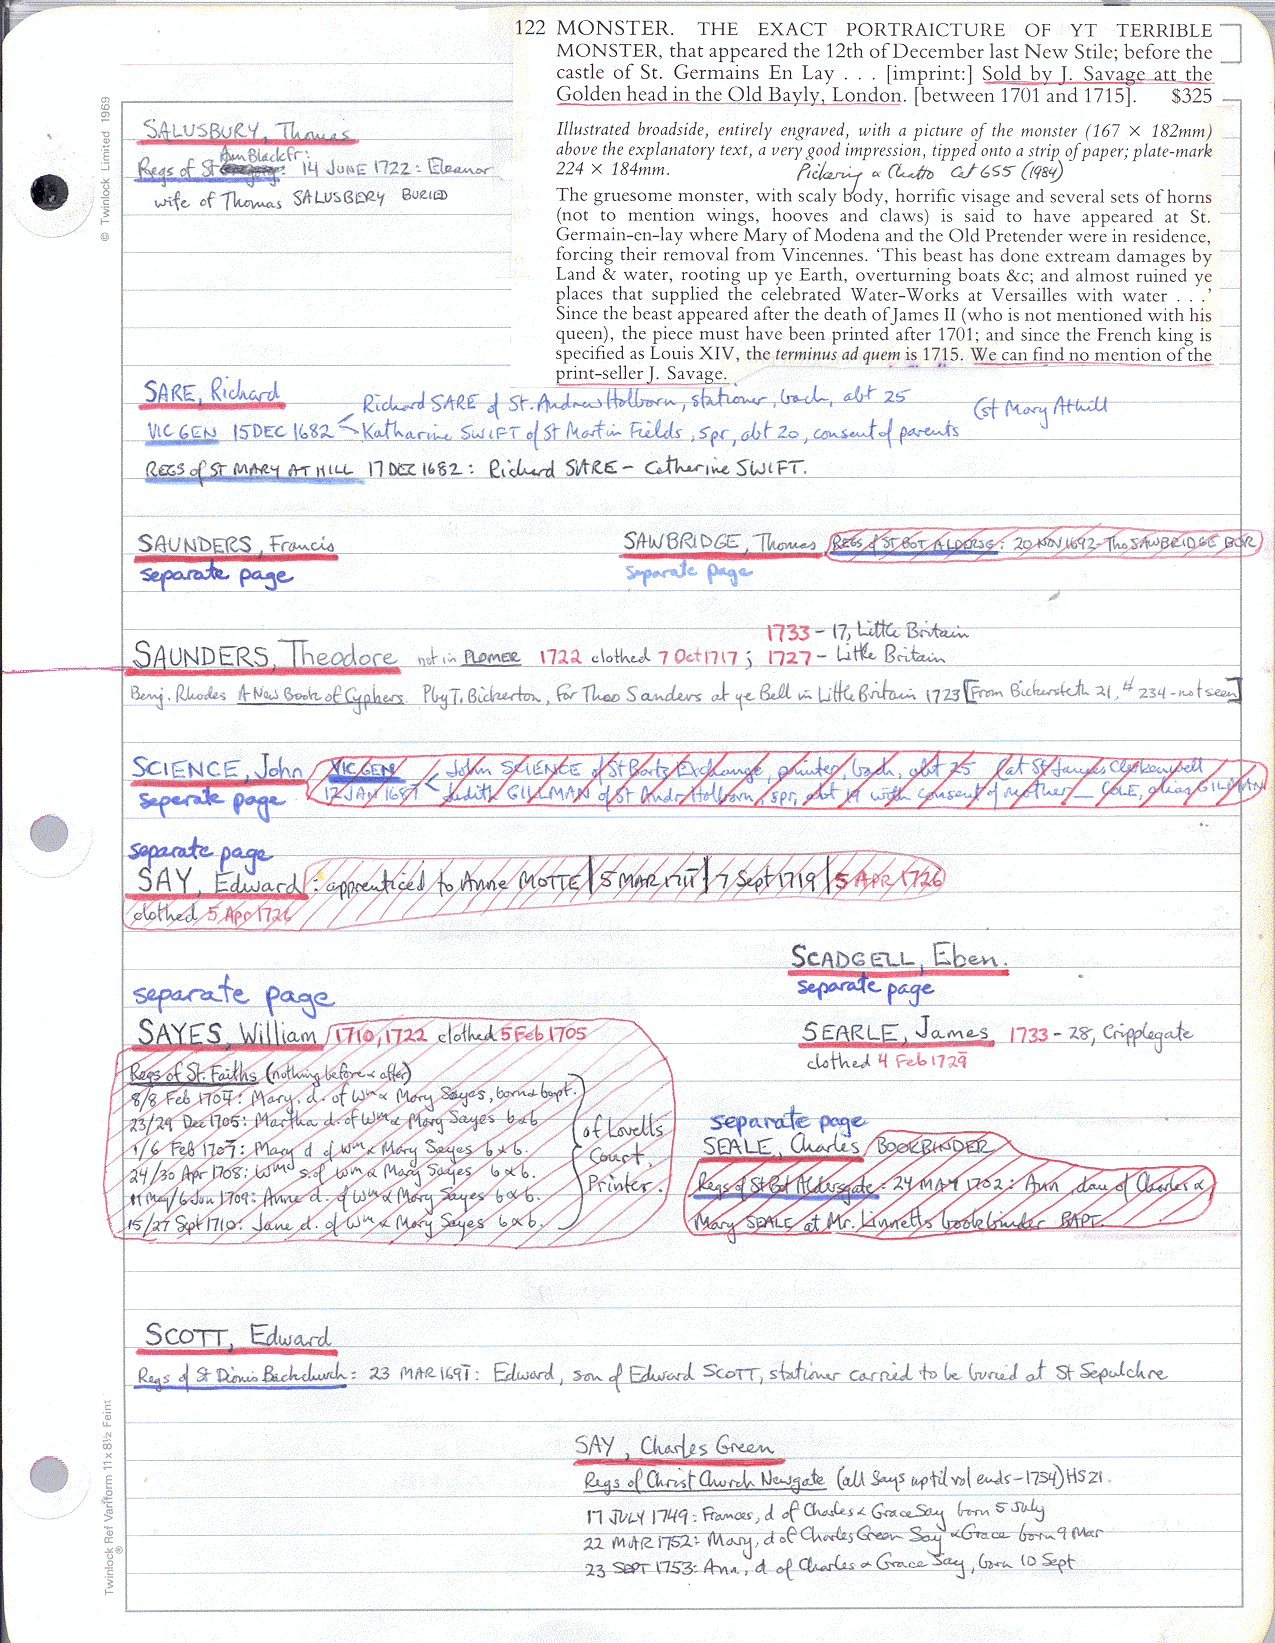 122 MONSTER. THE EXACT PORTRAICTURE OF YT TERRIBLE
MONSTER, that appeared the 12th of December last New Stile; before the
castle of St. Germains En Lay . . . [imprint:] Sold by J. Savage att the
Golden head in the Old Bayly, London. [between 1701 and 1715]. $325
Illustrated broadside, entirely engraved, with a picture of the monster (167 × 182mm)
above the explanatory text, a very good impression, tipped onto a strip of paper; plate-mark
224 × 184mm.
Pickering & Chatto Cat 655 (1984)
The gruesome monster, with scaly body, horrific visage and several sets of horns
(not to mention wings, hooves and claws) is said to have appeared at St.
Germain-en-lay where Mary of Modena and the Old Pretender were in residence,
forcing their removal from Vincennes. ‘This beast has done extream damages by
Land & water, rooting up ye Earth, overturning boats &c; and almost ruined ye
places that supplied the celebrated Water-Works at Versailles with water . . .’
Since the beast appeared after the death of James II (who is not mentioned with his
queen), the piece must have been printed after 1701; and since the French king is
specified as Louis XIV, the terminus ad quem is 1715. We can find no mention of the
print-seller J. Savage.
© Twinlock Limited 1969
SALUSBURY, Thomas
Ann Blackfr:
Regs of St 14 JUNE 1722: Eleanor
wife of Thomas SALUSBERY BURIED
SARE, Richard
Richard SARE of St. Andrew Holborn, stationer, bach, abt 25
(St Mary At Hill
VIC GEN 15 DEC 1682
Katharine SWIFT of St Martin Fields, spr, abt 20, consent of parents
REGS of ST MARY AT HILL 17 DEC 1682: Richard SARE - Catherine SWIFT.
SAUNDERS, Francis
separate page
SAWBRIDGE, Thomas REGS of ST BOT ALDERSG: 20 NOV 1692 - Tho SAWBRIDGE BUR
separate page
1733 - 17, Little Britain
SAUNDERS, Theodore not in PLOMER 1722 clothed 7 Oct 1717; 1727 - Little Britain
Benj. Rhodes A New Book of Cyphers P by T. Bickerton, for Theo Sanders at ye Bell in Little Britain 1723 [From Bickersteth 21, # 234 - not seen]
SCIENCE, John VIC GEN John SCIENCE of St Bartz Exchange, printer, bach, abt 25 (at St James Clerkenwell
seperate page 12 JAN 1687 Judith GILLMAN of St Andr Holborn, spr, abt 19 with consent of mother - COLE, alias GILLMAN
separate page
SAY, Edward: apprenticed to Anne MOTTE | 5 MAR 171 | 7 Sept 1719 | 5 APR 1726
clothed 5 Apr 1726
SCADGELL, Eben.
separate page
separate page
SAYES, William 1710, 1722 clothed 5 Feb 1705
SEARLE, James 1733 - 28, Cripplegate
clothed 4 Feb 1729
Regs of St. Faiths (nothing before & after)
8/8 Feb 1704: Mary, d. of Wm & Mary Sayes, born & bapt.
23/29 Dec 1705: Martha d. of Wm & Mary Sayes b & b
1/6 Feb 1707: Mary d of Wm & Mary Sayes b & b.
24/30 Apr 1708: Wm s. of Wm & Mary Sayes b & b.
11 May/6 Jun 1709: Anne d. of Wm & Mary Sayes b & b.
15/27 Sept 1710: Jane d. of Wm & Mary Sayes b & b.
of Lovells
Court,
Printer.
separate page
SEALE, Charles BOOKBINDER
Regs of St Bot Aldersgate: 24 MAY 1702: Ann, dau of Charles &
Mary SEALE at Mr. Linnetts bookbinder BAPT.
SCOTT, Edward
Regs of St Dionis Backchurch: 23 MAR 1697: Edward, son of Edward SCOTT, stationer carried to be buried at St Sepulchre
SAY, Charles Green
Regs of Christ Church Newgate (all Says up til vol ends - 1754) HS21.
17 JULY 1749: Frances, d of Charles & Grace Say born 5 July
22 MAR 1752: Mary, d of Charles Green Say & Grace born 9 Mar
23 SEPT 1753: Ann, d of Charles & Grace Say, born 10 Sept
Twinlock Ref Variform 11 x 8½ Feint